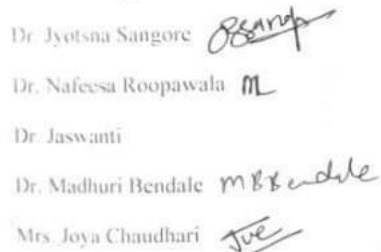 Dr. Jyotsna Sangore
Dr. Nafeesa Roopawala
Dr. Jaswanti
Dr. Madhuri Bendale MBBendale
Mrs. Joya Chaudhari